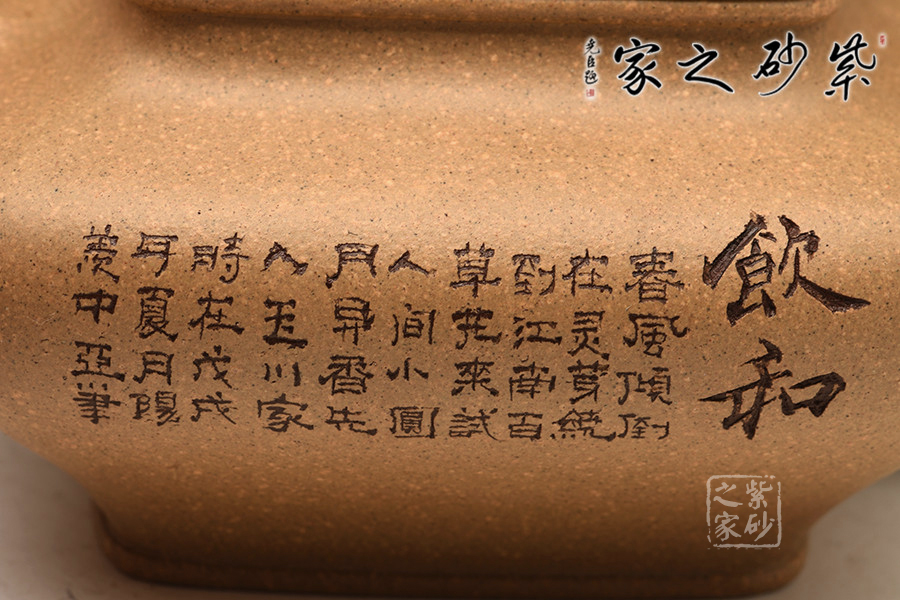 紫砂之家
飲和
春風傾倒
在灵芽纔
到江南百
草花來試
人间小圓
月异香先
入玉川家
時在戊戌
年夏月陽
羨中亞筆
紫砂
之家